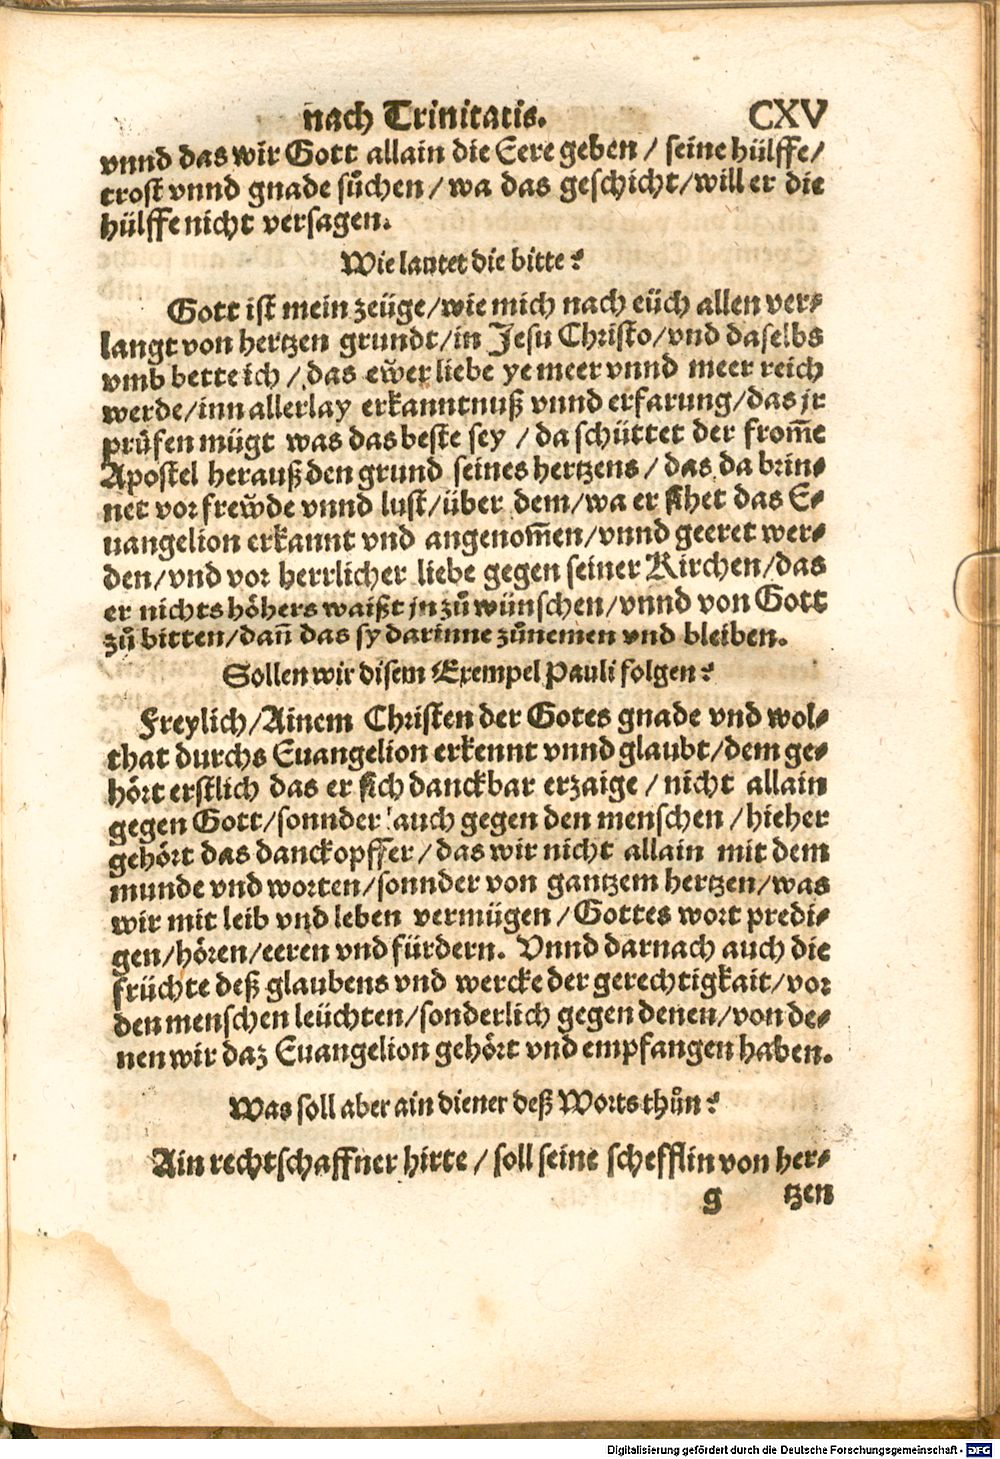 nach Trinitatis. CXV
vnnd das wir Gott allain die Eere geben / seine hülffe/
trost vnnd gnade sůchen / wa das geschicht/ will er die
hülffe nicht versagen.
Wie lautet die bitte?
Gott ist mein zeüge/ wie mich nach eüch allen ver-
langt von hertzen grundt/ in Jesu Christo/ vnd daselbs
vmb bette ich / das ewer liebe ye meer vnnd meer reich
werde/ inn allerlay erkanntnuß vnnd erfarung/ das jr
prüfen mügt was das beste sey / da schüttet der from̃e
Apostel herauß den grund seines hertzens / das da brin-
net vor frewde vnnd lust/ über dem/ wa er sihet das E-
uangelion erkannt vnd angenom̃en/ vnnd geeret wer-
den/ vnd vor herrlicher liebe gegen seiner Kirchen/ das
er nichts höhers waißt jn zů wünschen/ vnnd von Gott
zů bitten/ dañ das sy darinne zůnemen vnd bleiben.
Sollen wir disem Exempel Pauli folgen?
Freylich/ Ainem Christen der Gotes gnade vnd wol-
that durchs Euangelion erkennt vnnd glaubt/ dem ge-
hört erstlich das er sich danckbar erzaige / nicht allain
gegen Gott/ sonnder auch gegen den menschen / hieher
gehört das danckopffer / das wir nicht allain mit dem
munde vnd worten/ sonnder von gantzem hertzen/ was
wir mit leib vnd leben vermügen / Gottes wort predi-
gen/ hören/ eeren vnd fürdern. Vnnd darnach auch die
früchte deß glaubens vnd wercke der gerechtigkait/ vor
den menschen leüchten/ sonderlich gegen denen/ von de-
nen wir daz Euangelion gehört vnd empfangen haben.
Was soll aber ain diener deß Worts thůn?
Ain rechtschaffner hirte / soll seine schefflin von her-
g tzen
Digitalisierung gefördert durch die Deutsche Forschungsgemeinschaft - DFG